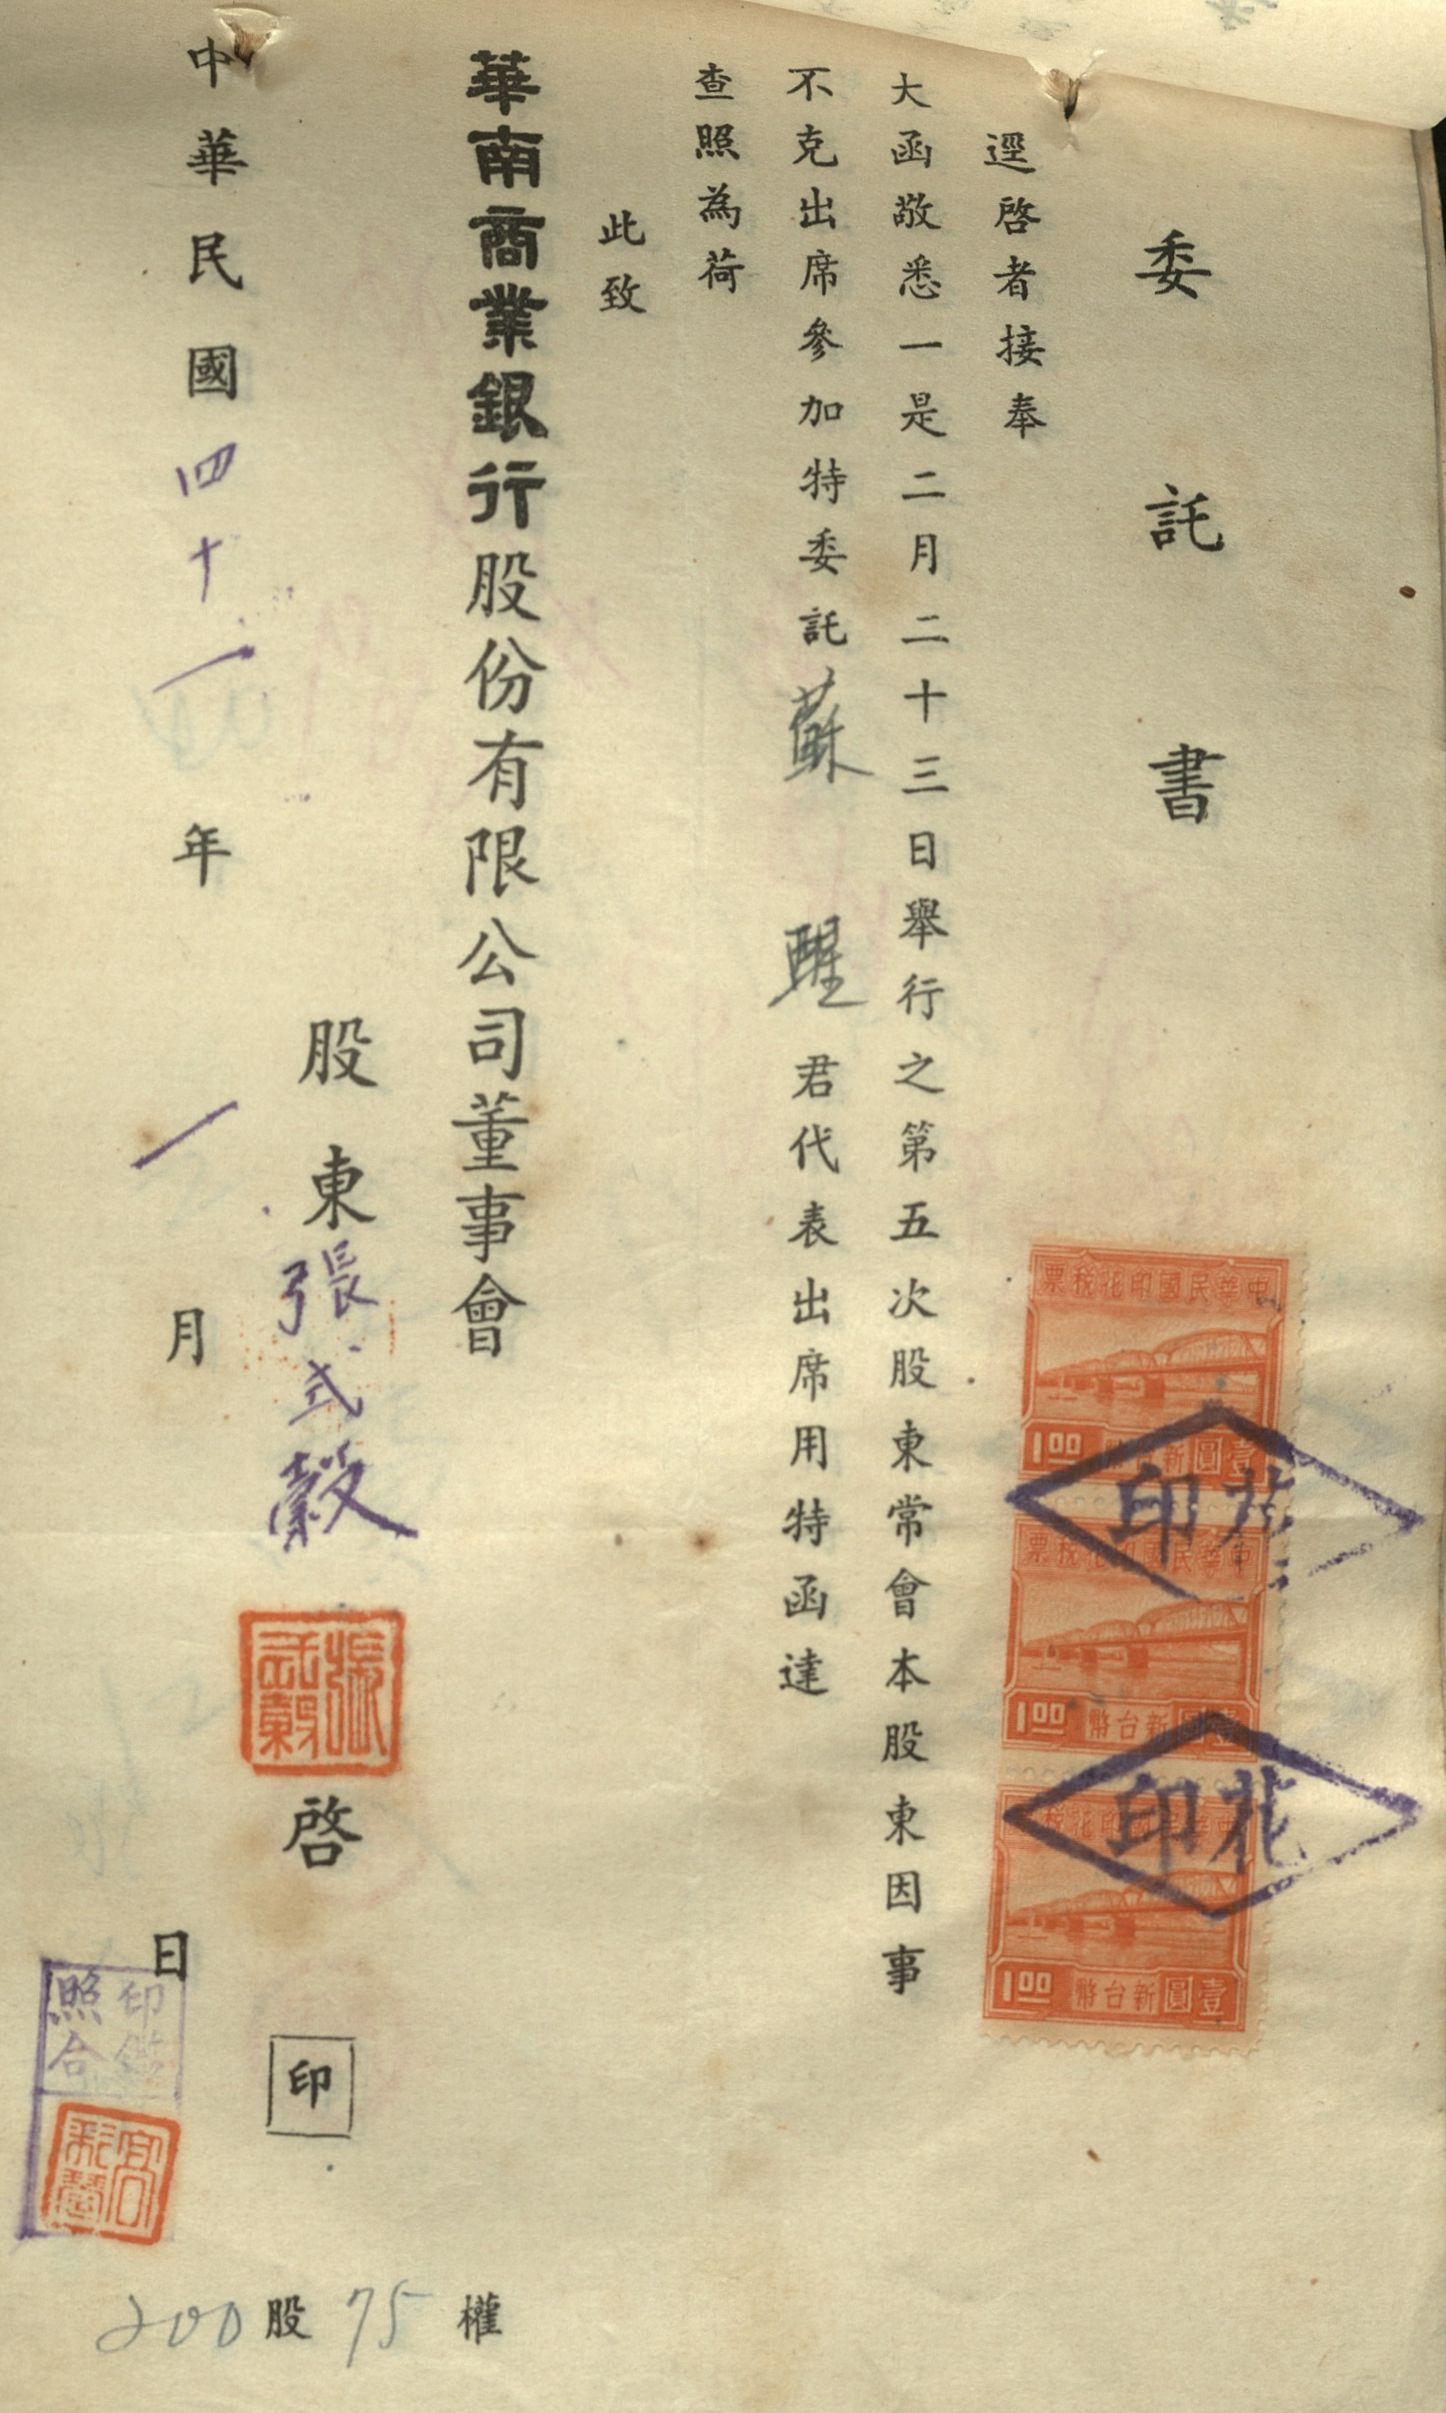 委託書
逕啓者接奉
大函敬悉一是二月二十三日舉行之第五次股東常會本股東因事
不克出席參加特委託蘇醒君代表出席用特函達
查照為荷
此致
華南商業銀行股份有限公司董事會
股東張式穀啓
印
中華民國四十一年一月日
200股75權
中華民國印花稅票
1.00 壹圓新台幣
中華民國印花稅票
1.00 壹圓新台幣
中華民國印花稅票
1.00 壹圓新台幣
印花
印花
張式穀
印鑑
照合